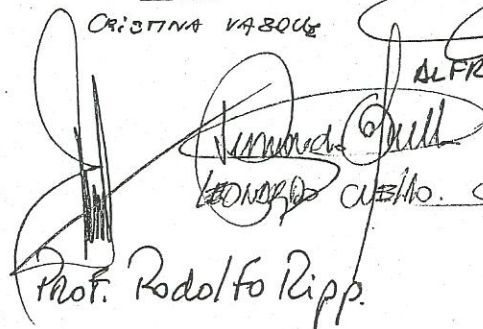 CRISTINA VASQUE
ALFR
LEONARDO
PROF. Rodolfo Ripp.